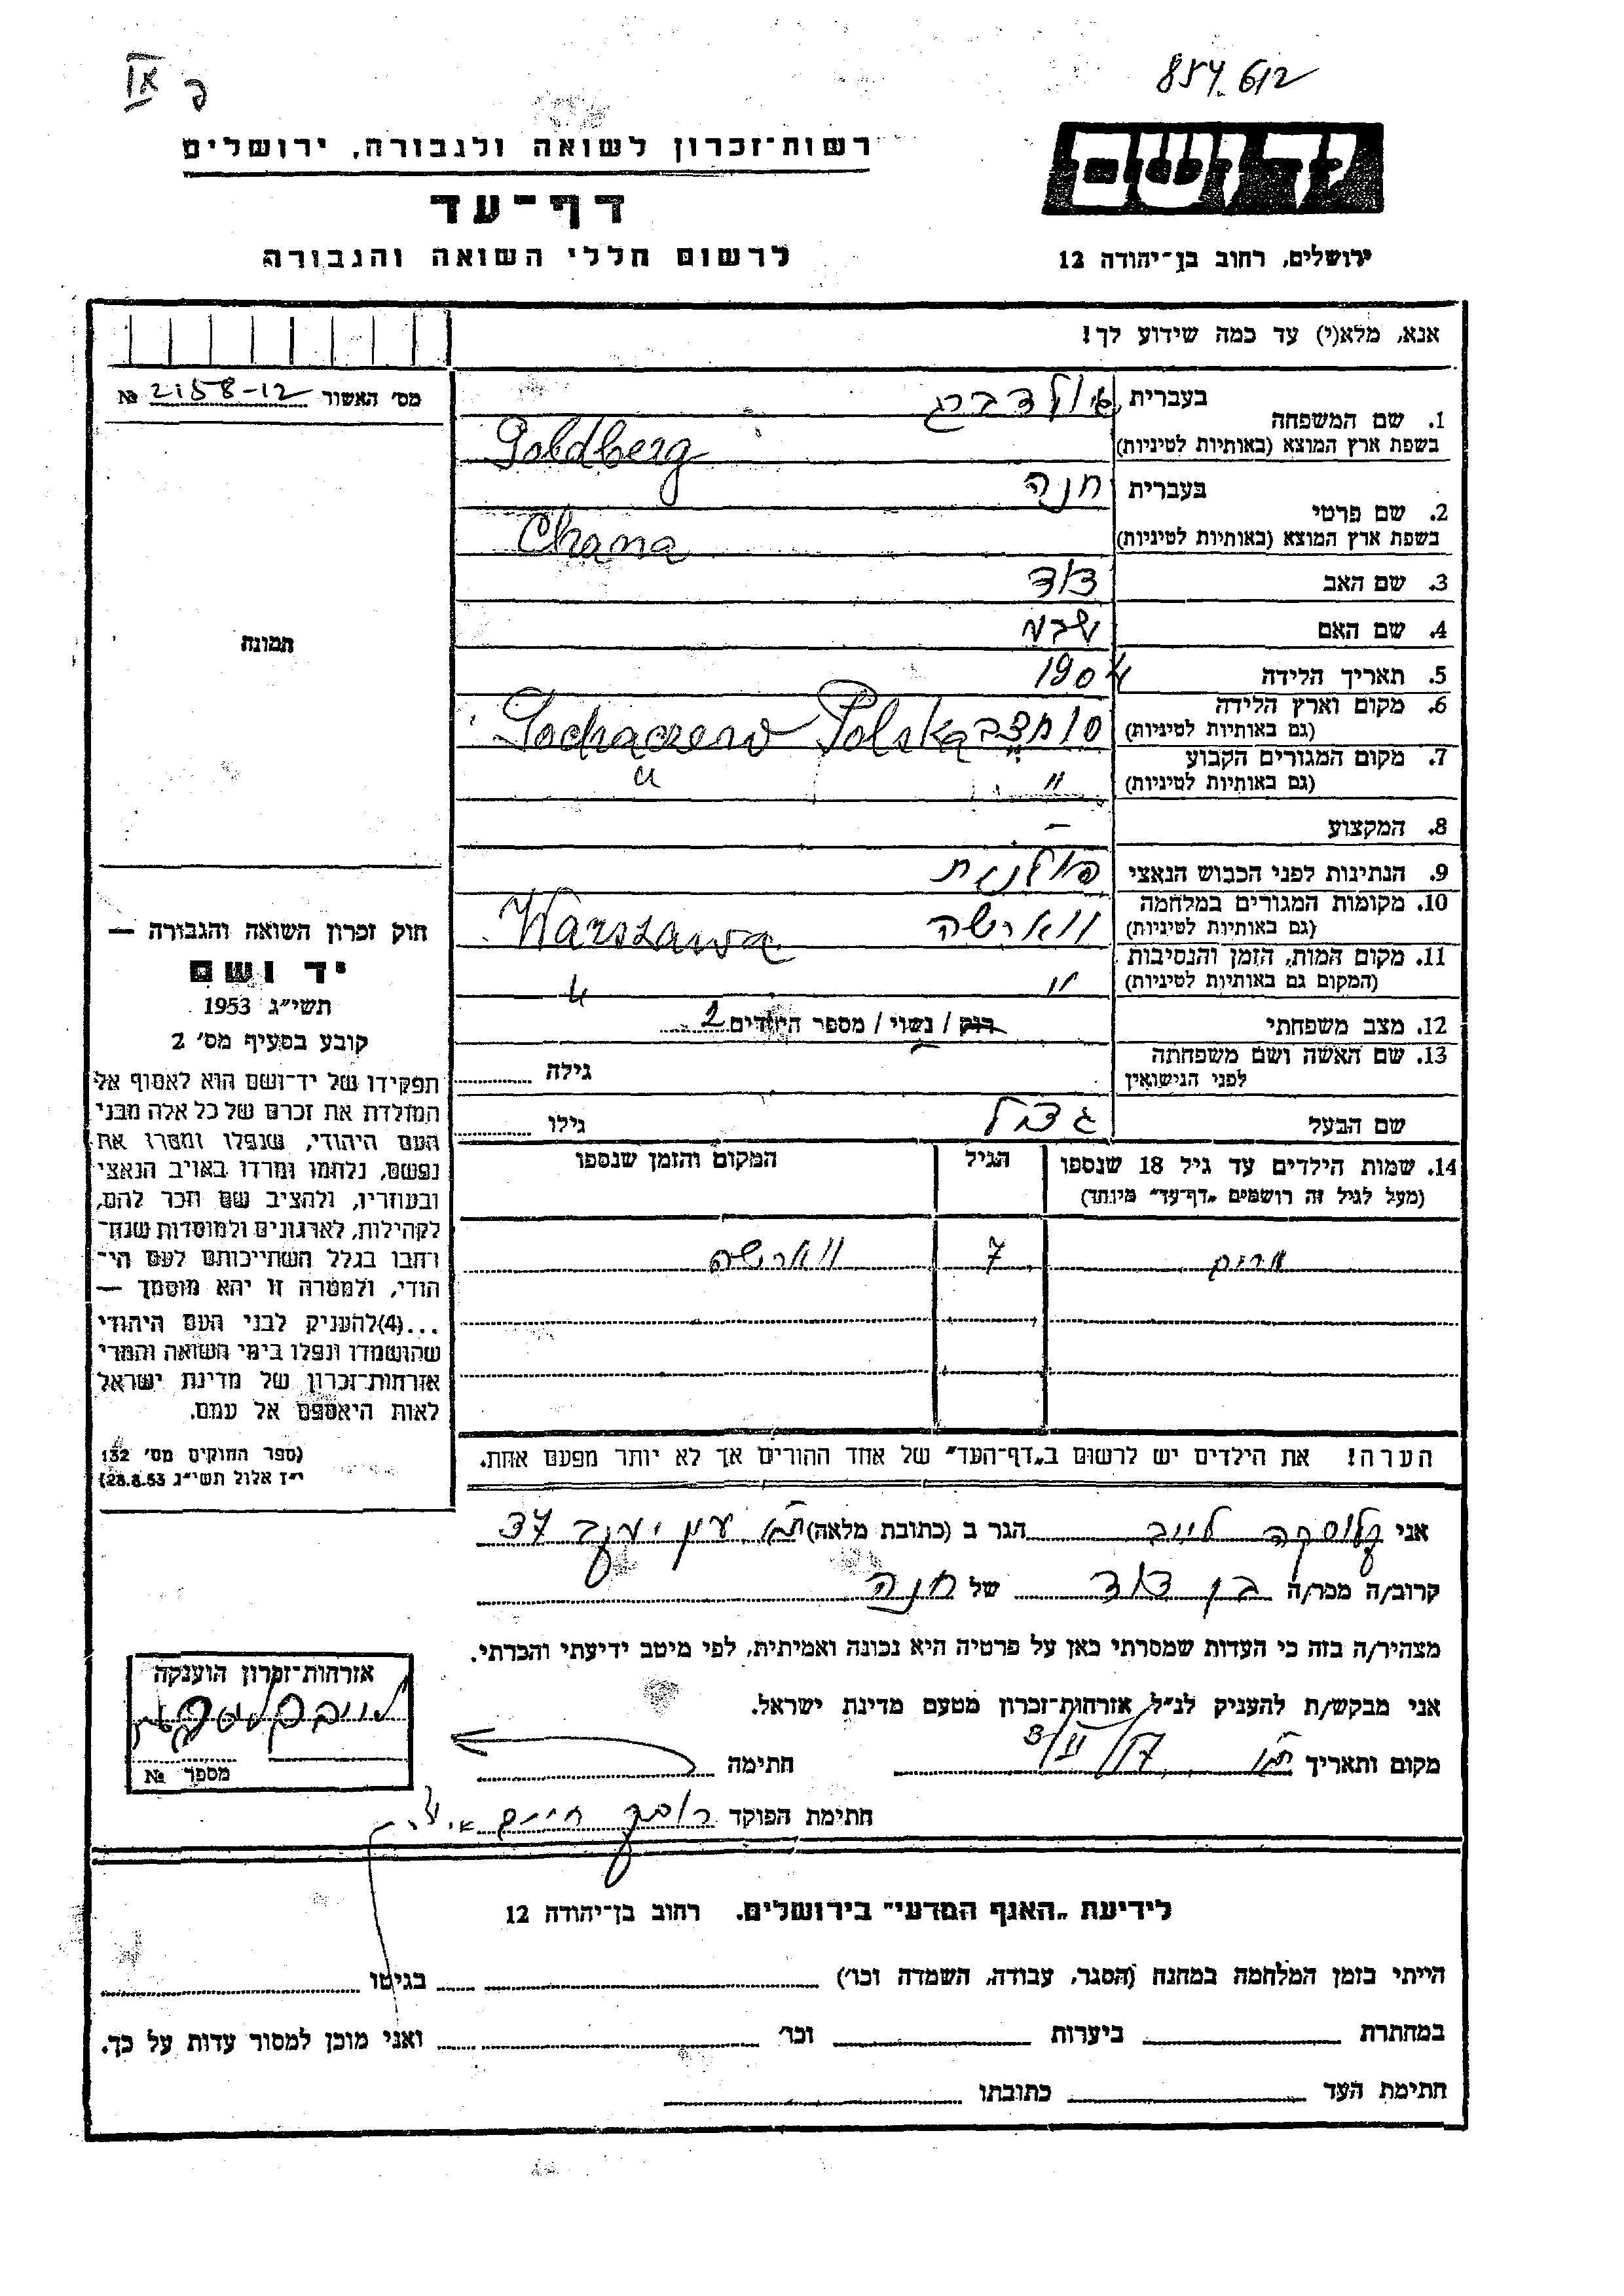 854.612
פ
IX
יד ושם
רשות־זכרון לשואה ולגבורה, ירושלים
דף־עד
לרשום חללי השואה והגבורה
ירושלים, רחוב בן־יהודה 12
אנא, מלא(י) עד כמה שידוע לך!
מס' האשור 2158-12 №
תמונה
חוק זכרון השואה והגבורה —
יד ושם
תשי״ג 1953
קובע בסעיף מס' 2
תפקידו של יד־ושם הוא לאסוף אל
המולדת את זכרם של כל אלה מבני
העם היהודי, שנפלו ומסרו את
נפשם, נלחמו ומרדו באויב הנאצי
ובעוזריו, ולהציב שם וזכר להם,
לקהילות, לארגונים ולמוסדות שנח־
רחבו בגלל השתייכותם לעם הי־
הודי, ולמטרה זו יהא מוסמך —
...(4)להעניק לבני העם היהודי
שהושמדו ונפלו בימי השואה והמרי
אזרחות־זכרון של מדינת ישראל
לאות היאספם אל עמם.
(ספר החוקים מס' 132
י״ז אלול תשי״ג 28.8.53)
1. שם המשפחה בעברית גולדברג
בשפת ארץ המוצא (באותיות לטיניות) Goldberg
2. שם פרטי בעברית חנה
בשפת ארץ המוצא (באותיות לטיניות) Chana
3. שם האב דוד
4. שם האם שבע
5. תאריך הלידה 1904
6. מקום וארץ הלידה
(גם באותיות לטיניות) סוחצ'ב Sochaczew Polska
7. מקום המגורים הקבוע
(גם באותיות לטיניות) " "
8. המקצוע –
9. הנתינות לפני הכבוש הנאצי פולנית
10. מקומות המגורים במלחמה
(גם באותיות לטיניות) ווארשה Warszawa
11. מקום המות, הזמן והנסיבות
(המקום גם באותיות לטיניות) " "
12. מצב משפחתי רוק / נשוי / מספר הילדים 2
13. שם האשה ושם משפחתה
לפני הנישואין גילה
שם הבעל גילו
14. שמות הילדים עד גיל 18 שנספו הגיל המקום והזמן שנספו
(מעל לגיל זה רושמים „דף־עד״ מיוחד)
7 ווארשה
הערה! את הילדים יש לרשום ב„דף־העד״ של אחד ההורים אך לא יותר מפעם אחת.
אני לייב הגר ב (כתובת מלאה) ת״א, עין יעקב 37
קרוב/ה מכר/ה בן דוד של חנה
מצהיר/ה בזה כי העדות שמסרתי כאן על פרטיה היא נכונה ואמיתית, לפי מיטב ידיעתי והכרתי.
אני מבקש/ת להעניק לנ״ל אזרחות־זכרון מטעם מדינת ישראל.
מקום ותאריך ת״א 17/II/ חתימה
חתימת הפוקד
אזרחות־זכרון הוענקה
מספר №
לידיעת „האגף המדעי״ בירושלים. רחוב בן־יהודה 12
הייתי בזמן המלחמה במחנה (הסגר, עבודה, השמדה וכו') בגיטו
במחתרת ביערות וכו' ואני מוכן למסור עדות על כך.
חתימת העד כתובתו